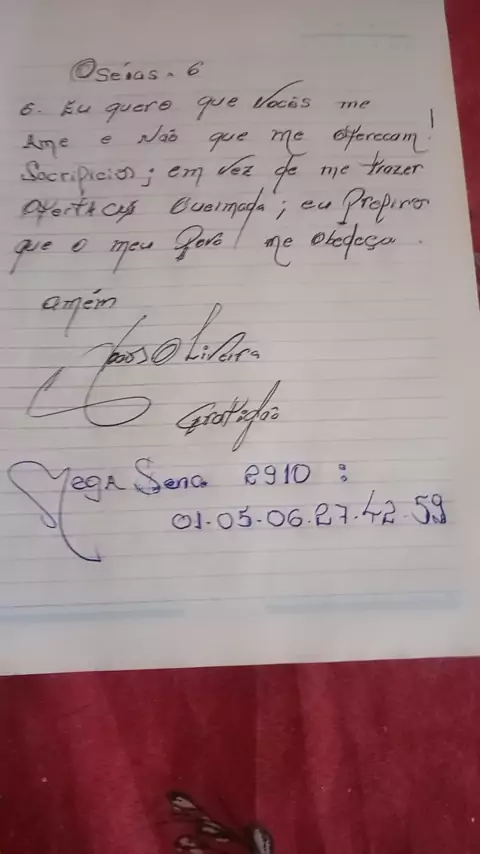 Oséias. 6
6. Eu quero que Vocês me
Ame e Não que me ofereçam!
Sacrificios; em vez de me trazer
Ofertas Queimada; eu Prefiro
que o meu Povo me obedeça.
amém
Oliveira
Gratidão
Mega Sena 2910:
01.05.06.27.42.59